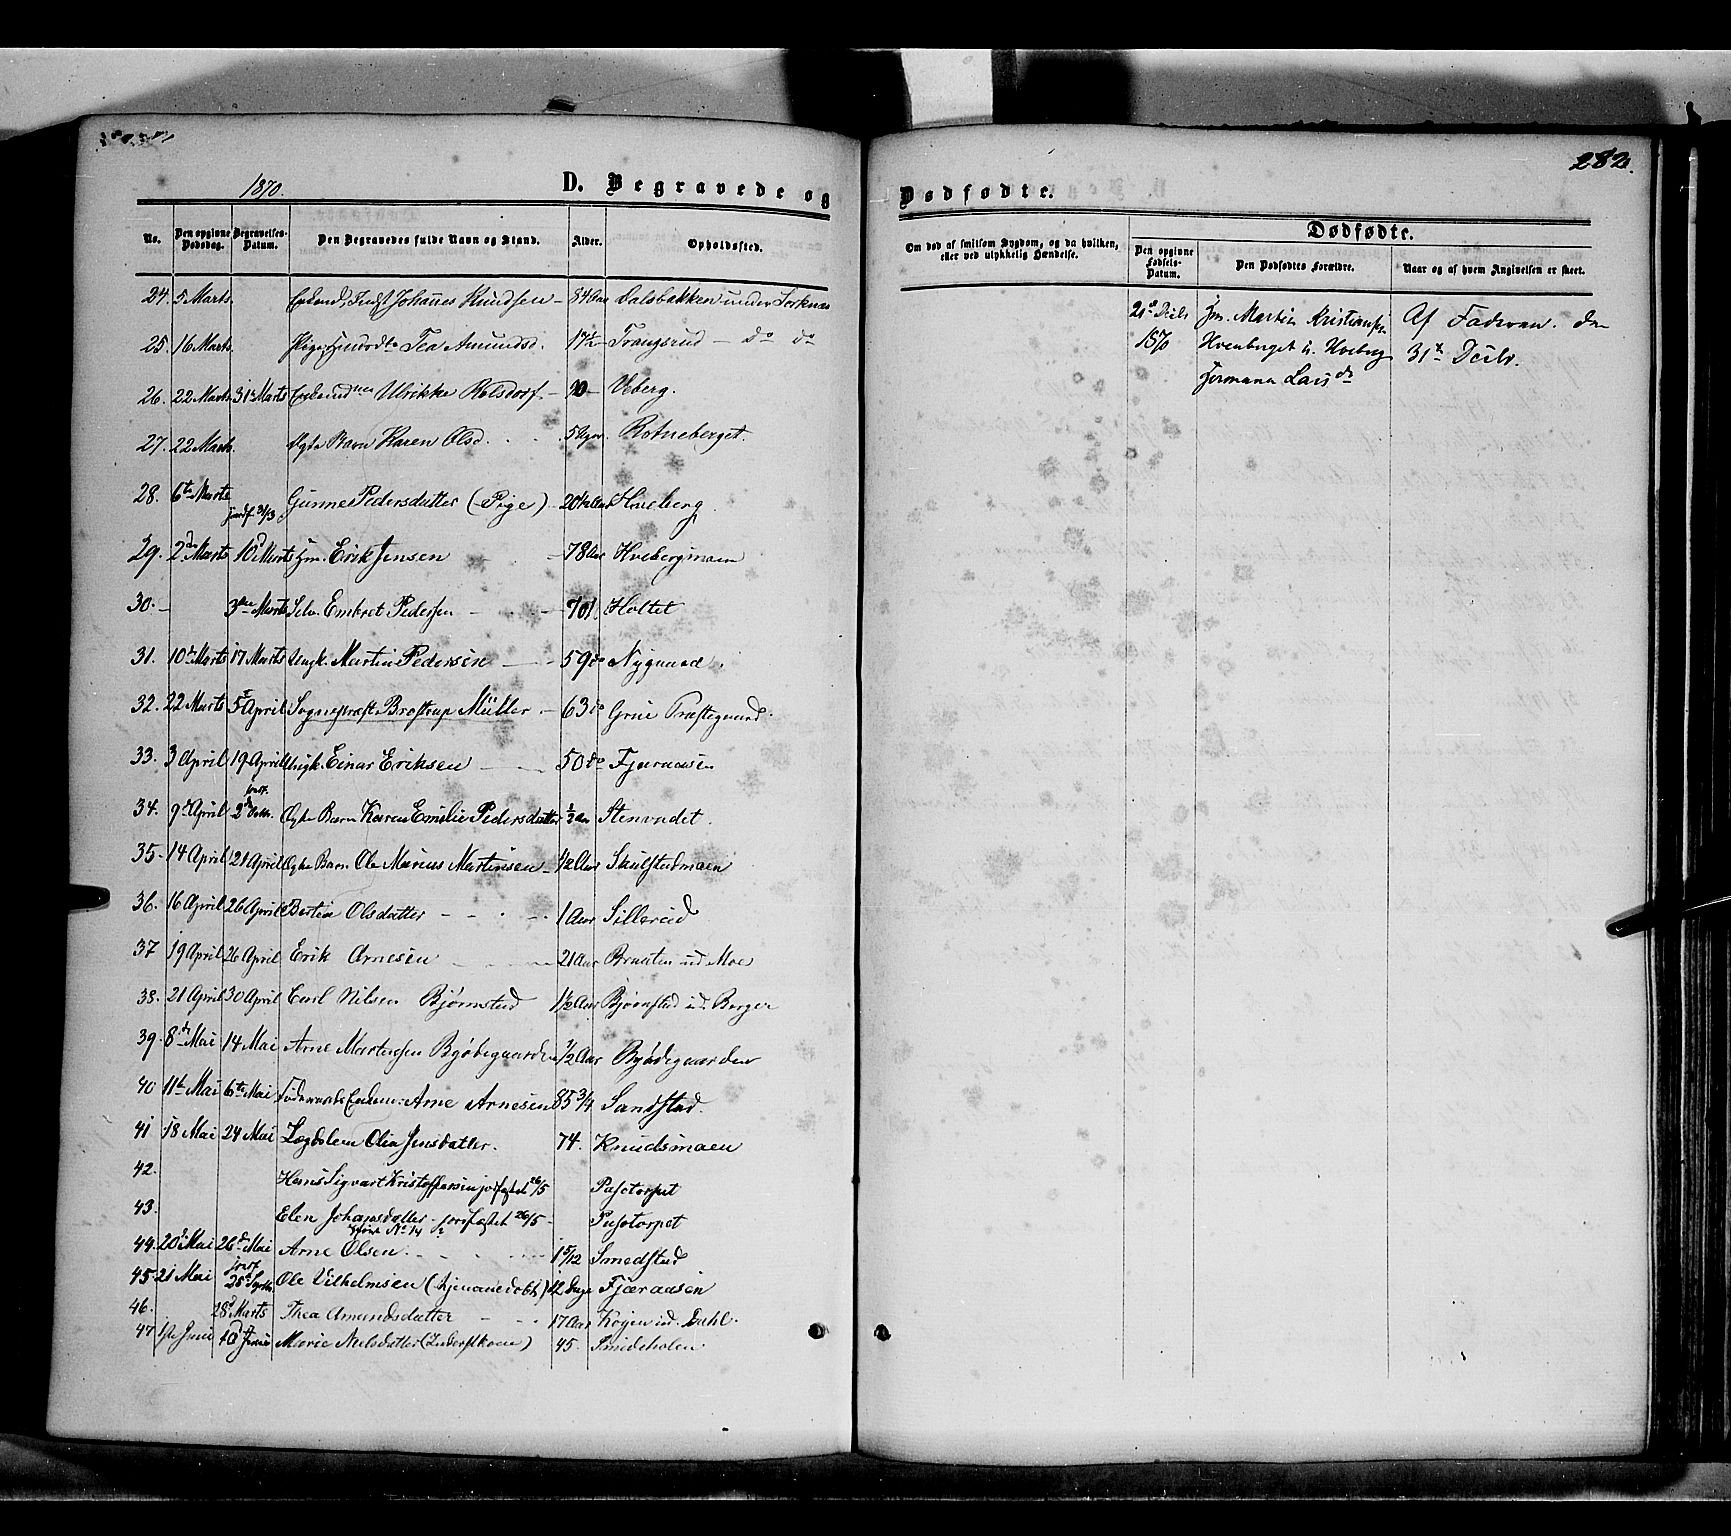 282.
1870.
D. Begravede og
Dødfødte.
No. Den opgivne Dødsdag. Begravelses-Datum. Den Begravedes fulde Navn og Stand. Alder. Opholdssted.
Om død af smitsom Sygdom, og da hvilken, eller ved ulykkelig Hændelse.
Dødfødte.
Den opgivne Fødsels-Datum. Den Dødfødtes Forældre. Naar og af hvem Angivelsen er skeet.
24. 5 Marts. Johanes Knudsen 84 Aar Dalsbakken under
25. 16 Marts. Tea Amundsd. 17 Trangsrud - do do
26. 22 Marts 31 Marts Ulrikke Rolsdorf. 70 Veberg.
27. 22 Marts. Ægte Barn Karen Olsd. 5 Rotneberget.
28. 6te Marts jordf. 31/3 Gunnes Pedersdatter (Pige) 20 1/2 Aar Hveberg.
29. 2den Marts 10d Marts Gm. Erik Jensen 78 Aar Hvebergmoen
30. 3die Marts Selv. Embret Pedersen 70 Holtet
31. 10de Marts 17 Marts Ungk. Martin Pedersen 59 do Nygaard
32. 22 Marts 5t April Sognepræst Brostrup Müller 63 do Grue Præstegaard.
33. 3 April 19 April Ungk. Einar Eriksen 50 do Fjæraasen
34. 9d April 2d Ægte Barn Karen Emilie Pedersdatter Aar Stenvadet.
35. 14 April 21 April Ægte Barn Ole Marius Martinsen 1/2 Aar Skulstadmoen
36. 16 April 26 April Bertea Olsdatter 1 Aar Sillerud
37 19 April 26 April Erik Arnesen 21 Aar Braaten ud Moe
38. 21 April 30 April Emil Nilsen Bjørnstad 1 1/2 Aar Bjørnstad ud. Berger
39. 8de Mai 14 Mai Arne Martensen Bygdegaarden 1/2 Aar Bygdegaarden
40 11te Mai 6te Mai Arne Arnesen 85 3/4 Sandstad.
41 18 Mai 24 Mai Lægdslem Olia Jensdatter. 74. Knudsmoen
42. Hans Sigvart Kristoffersen jordfæstet 26/5 Pustorpet
43. Elen Johansdatter jordfæstet 26/5 Pustorpet
No 14
44. 20d Mai 26d Mai Arne Olsen 1 5/12 Smedstad
45 21 Mai jordf. 25 Septbr. Ole Vilhelmsen (hjemmedøbt) 12 Dage Fjæraasen
46. 28d Marts Thea Amundsdatter 17 Aar Kojen ud. Dahl.
47 1ste Juni 10d Juni Marie Nilsdatter (Inderstkone) 45. Smedeholen
21d Decbr 1870 Gm. Martin Kristiansen Af Faderen. den
Hvenberget u. Hveberg 31te Decbr.
Hermana Larsdr